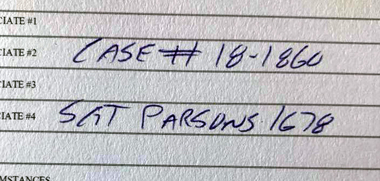 CIATE #1
CIATE #2 CASE # 18-1860
CIATE #3
CIATE #4 SGT PARSONS 1678
MSTANCES